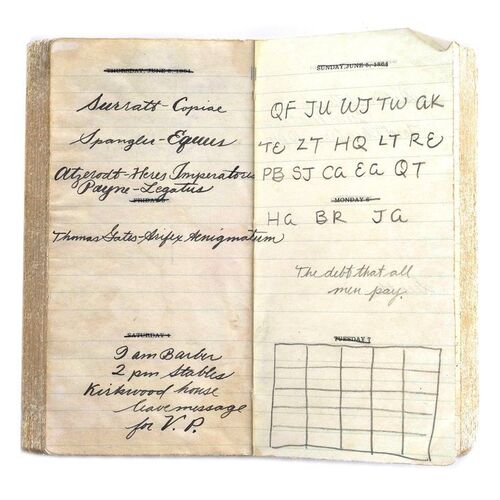 THURSDAY, JUNE 2, 1864
Surratt-Copiae
Spangler-Equus
Atzerodt-Heres Imperatoris
Payne-Legatus
FRIDAY 3
Thomas Gates-Arifex Aenigmatum
SATURDAY 4
9 am Barber
2 pm Stables
Kirkwood house
leave message
for V.P.
SUNDAY, JUNE 5, 1864
QF JU WJ TW QK
TE ZT HQ LT RE
PB SJ Ca Ea QT
MONDAY 6
Ha BR Ja
The debt that all
men pay.
TUESDAY 7